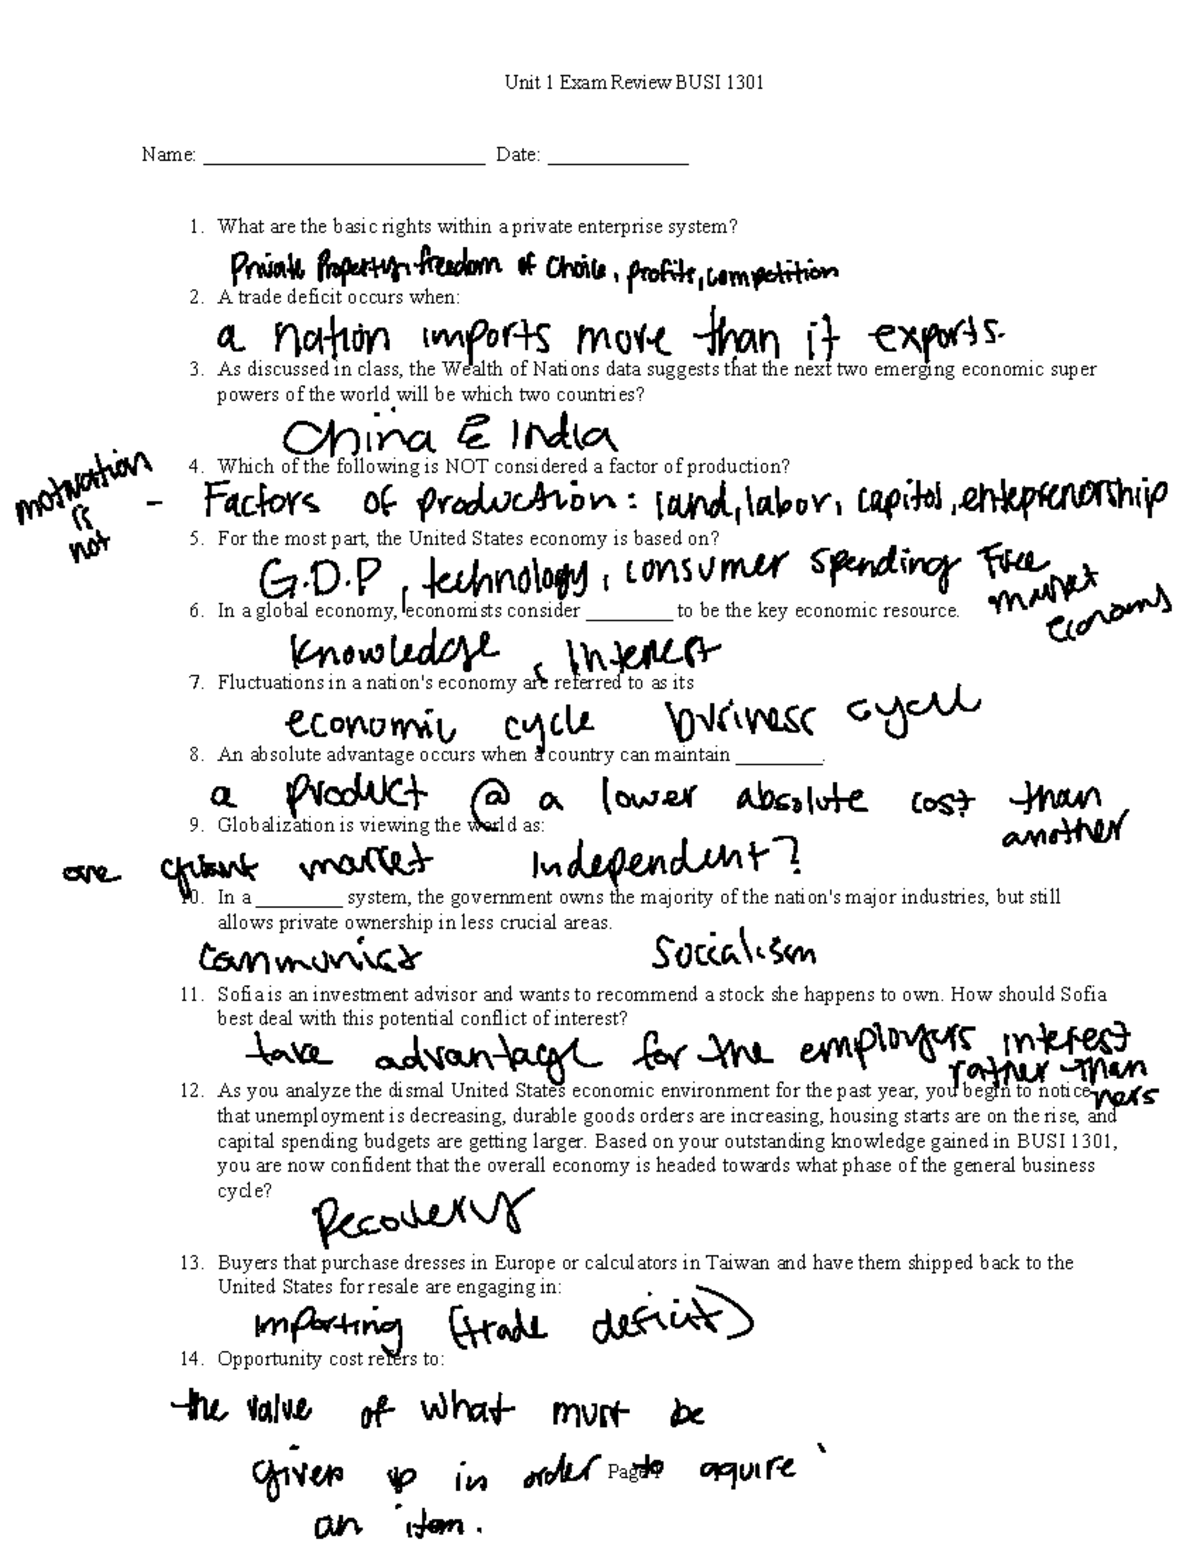 Unit 1 Exam Review BUSI 1301
Name: __________________________ Date: _____________
1. What are the basic rights within a private enterprise system?
Private Property, freedom of choice, profits, competition
2. A trade deficit occurs when:
a nation imports more than it exports.
3. As discussed in class, the Wealth of Nations data suggests that the next two emerging economic super
powers of the world will be which two countries?
China & India
4. Which of the following is NOT considered a factor of production?
motivation
is
not
- Factors of production: land, labor, capital, enteprenorship
5. For the most part, the United States economy is based on?
G.D.P, technology, consumer spending Free
market
economy
6. In a global economy, economists consider ________ to be the key economic resource.
Knowledge, Interest
7. Fluctuations in a nation's economy are referred to as its
economic cycle business cycle
8. An absolute advantage occurs when a country can maintain ________.
a product @ a lower absolute cost than
another
9. Globalization is viewing the world as:
one giant market Independent?
10. In a ________ system, the government owns the majority of the nation's major industries, but still
allows private ownership in less crucial areas.
Communist Socialism
11. Sofia is an investment advisor and wants to recommend a stock she happens to own. How should Sofia
best deal with this potential conflict of interest?
take advantage for the employers interest
rather than
hers
12. As you analyze the dismal United States economic environment for the past year, you begin to notice
that unemployment is decreasing, durable goods orders are increasing, housing starts are on the rise, and
capital spending budgets are getting larger. Based on your outstanding knowledge gained in BUSI 1301,
you are now confident that the overall economy is headed towards what phase of the general business
cycle?
Recovery
13. Buyers that purchase dresses in Europe or calculators in Taiwan and have them shipped back to the
United States for resale are engaging in:
Importing (trade deficit)
14. Opportunity cost refers to:
the value of what must be
given up in order to aquire
an item.
Page